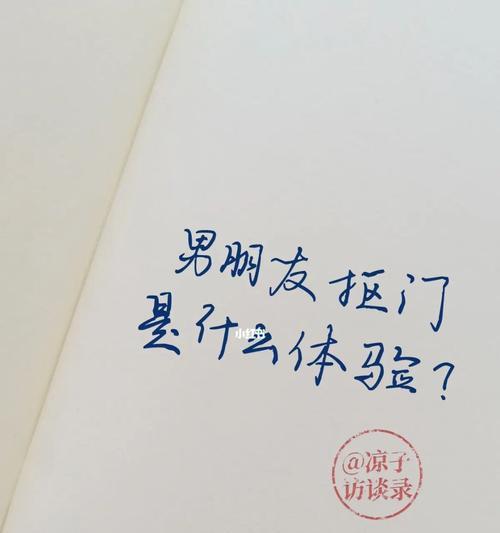 男朋友抠门
是什么体验？
小红书
@凉子
访谈录